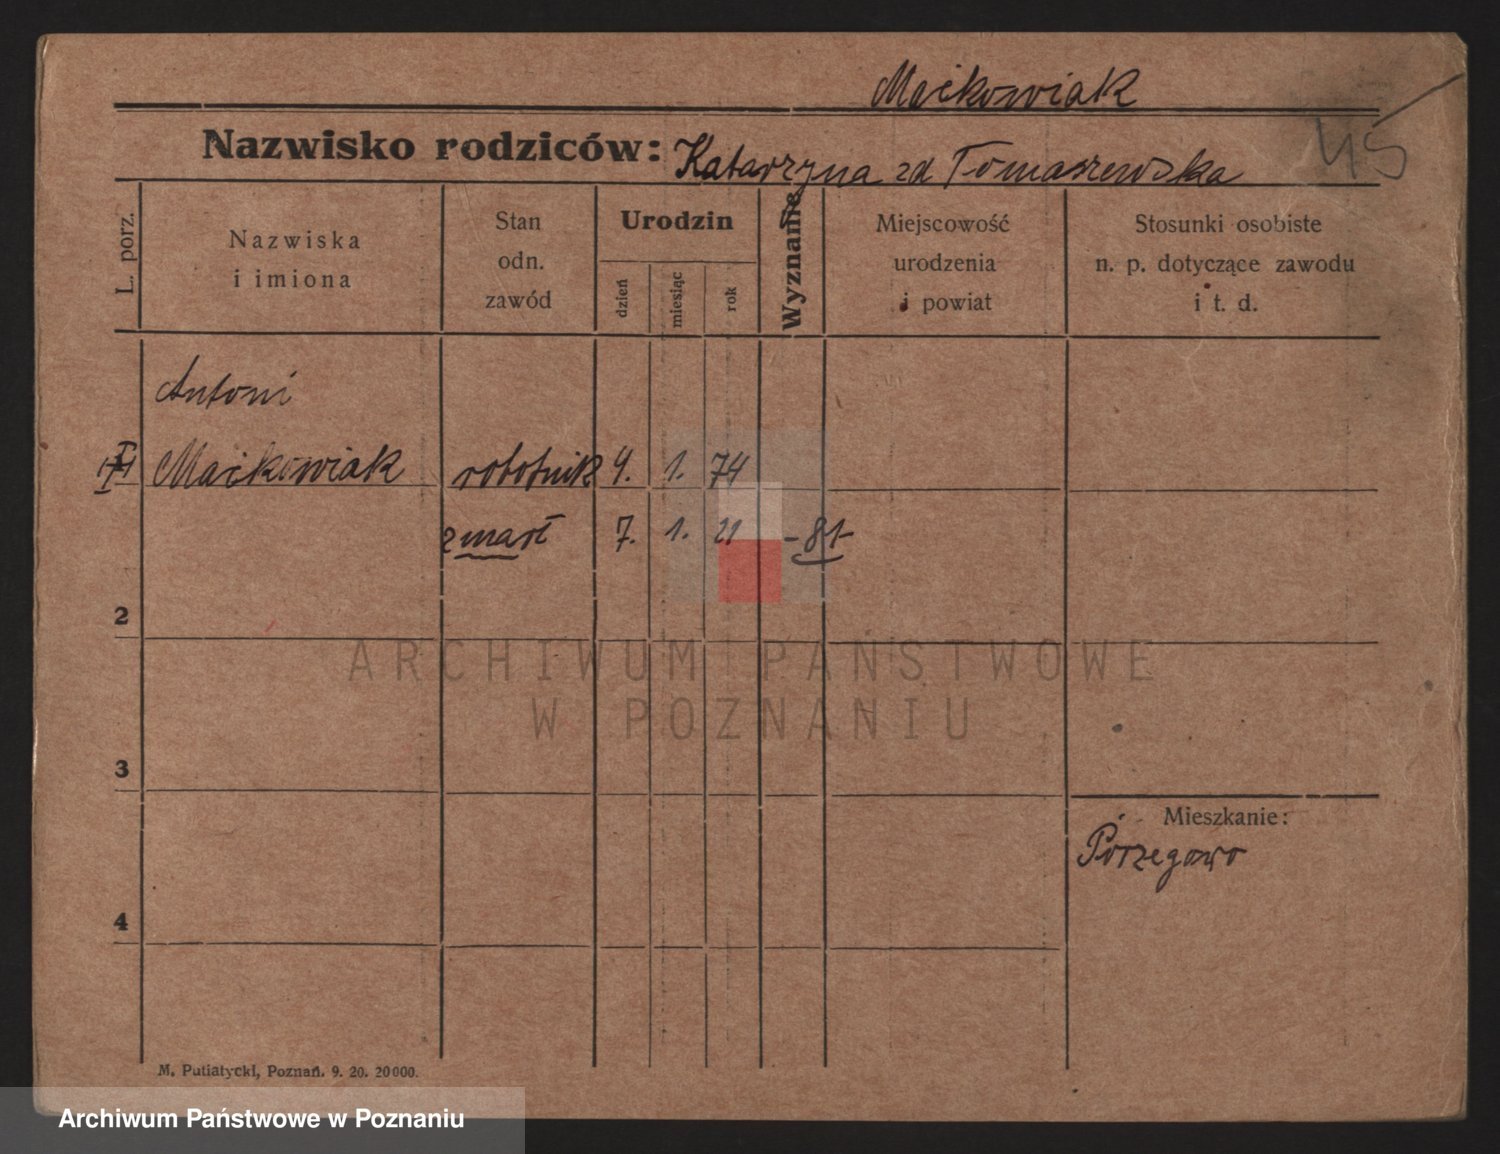 Maćkowiak
45
Nazwisko rodziców: Katarzyna zd Tomaszewska
L. porz.
Nazwiska
i imiona
Stan
odn.
zawód
Urodzin
dzień
miesiąc
rok
Wyznanie
Miejscowość
urodzenia
i powiat
Stosunki osobiste
n. p. dotyczące zawodu
i t. d.
Antoni
Maćkowiak robotnik 4. 1. 74
zmarł 7. 1. 21 -81-
2
ARCHIWUM PAŃSTWOWE
W POZNANIU
3
Mieszkanie:
Pórzegowo
4
M. Putiatycki, Poznań. 9. 20. 20000.
Archiwum Państwowe w Poznaniu